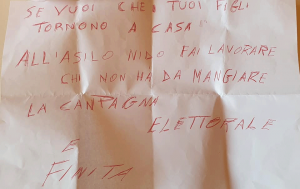 SE VUOI CHE I TUOI FIGLI
TORNONO A CASA
ALL'ASILO NIDO FAI LAVORARE
CHI NON HA DA MANGIARE
LA CANPAGNA
ELETTORALE
E
FINITA